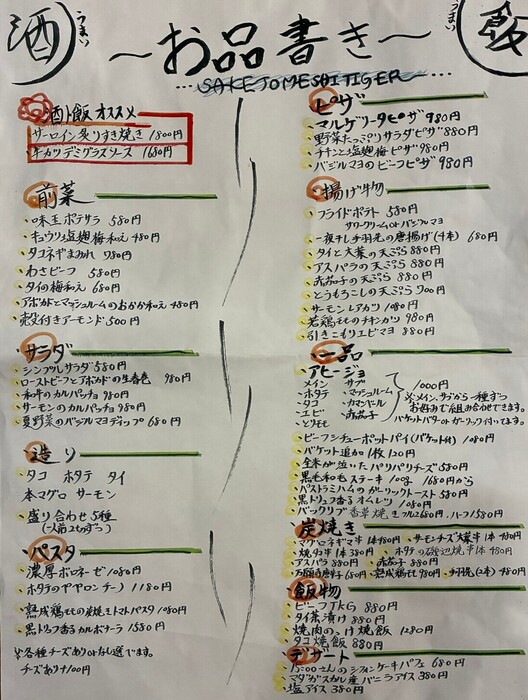 酒
うまい
〜お品書き〜
うまい
飯
...SAKETOMESHITIGER...
酒ト飯 オススメ
サーロイン炙りすき焼き 1800円
牛カツデミグラスソース 1680円
前菜
・味玉ポテサラ 580円
・キュウリと塩麹梅和え 480円
・タコネギまみれ 780円
・わさビーフ 580円
・タイの梅和え 680円
・アボカドとマッシュルームのおかか和え 480円
・売文付きアーモンド 500円
サラダ
・シンプルサラダ 580円
・ローストビーフとアボカドの生春巻 980円
・和牛のカルパッチョ 980円
・サーモンのカルパッチョ 980円
・夏野菜のバジルマヨディップ 680円
造り
・タコ ホタテ タイ
本マグロ サーモン
・盛り合わせ5種
(一人前2切ずつ)
パスタ
・濃厚ボロネーゼ 1080円
・ホタテのペペロンチーノ 1180円
・熟成鶏ももの炭焼きトマトパスタ 1080円
・黒トリュフ香るカルボナーラ 1580円
※各種チーズありorなし選べます。
チーズあり+100円
ピザ
・マルゲリータピザ 980円
・野菜たっぷりサラダピザ 880円
・チキンと塩麹梅ピザ 980円
・バジルマヨのビーフピザ 980円
揚げ物
・フライドポテト 580円
サワークリームorバジルマヨ
・一夜干し手羽先の唐揚げ(4本) 680円
・タイと大葉の天ぷら 880円
・アスパラの天ぷら 880円
・赤茄子の天ぷら 880円
・とうもろこしの天ぷら 700円
・サーモンレアカツ 1080円
・若鶏ももチキンカツ 980円
・引きこもりエビマヨ 880円
一品
・アヒージョ
メイン サブ
ホタテ ・マッシュルーム
タコ ・カマンベール
エビ ・赤茄子
とりもも
1000円
※メイン、サブから一種ずつ
お好みで組み合わせできます。
バケットバターorガーリック付いてます。
・ビーフシチューポットパイ(バケット付) 1080円
・バケット追加 1枚 120円
・全米が泣いたパリパリチーズ 580円
・黒毛和モモステーキ 100g 1680円から
・パストラミハムのガーリックトースト 580円
・黒トリュフ香るオムレツ 1080円
・バックリブ香草焼き フル2680円、ハーフ1580円
炭焼き
・マグロネギマ串 1本480円 ・サーモンチーズ大葉串 1本 480円
・焼タコ串 1本 380円 ・ホタテの磯辺焼き串 1本 480円
・アスパラ 880円 ・赤茄子 880円
・万願寺唐辛子 680円 ・熟成鶏もも 980円 ・手羽先(2本) 480円
飯物
・ビーフTKG 880円
・タイ茶漬け 880円
・焼肉のっけ焼飯 1280円
・タコ焼飯 880円
デザート
さんのシフォンケーキパフェ 680円
・マダガスカル産バニラアイス 380円
・塩アイス 380円